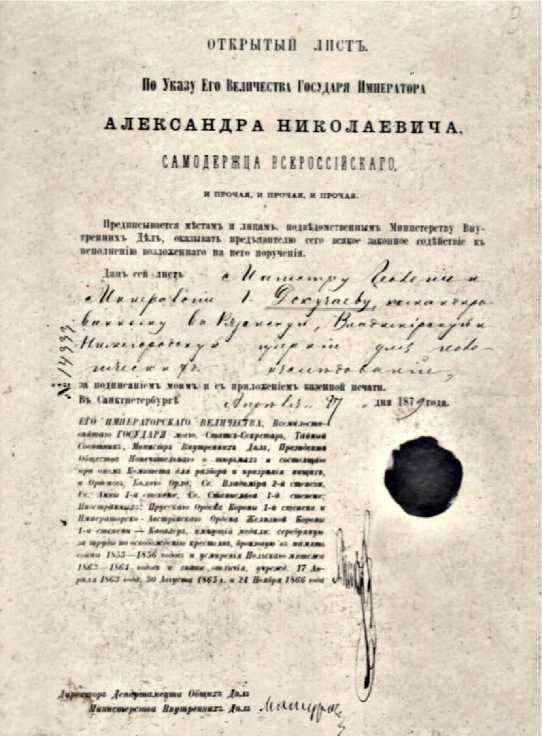 9
ОТКРЫТЫЙ ЛИСТЪ.
По Указу Его Величества Государя Императора
АЛЕКСАНДРА НИКОЛАЕВИЧА,
САМОДЕРЖЦА ВСЕРОССІЙСКАГО,
И ПРОЧАЯ, И ПРОЧАЯ, И ПРОЧАЯ.
Предписывается мѣстамъ и лицамъ, подвѣдомственнымъ Министерству Вну-
треннихъ Дѣлъ, оказывать предъявителю сего всякое законное содѣйствіе къ
исполненію возложеннаго на него порученія.
Данъ сей листъ Магистру Геологіи и
Минералогіи г. Докучаеву, командиро-
ванному въ Рязанскую, Владимірскую и
Нижегородскую губерніи для геоло-
гическихъ изслѣдованій,
за подписаніемъ моимъ и съ приложеніемъ казенной печати.
Въ Санктпетербургѣ Апрѣля 27 дня 1879 года.
№ 14333
ЕГО ИМПЕРАТОРСКАГО ВЕЛИЧЕСТВА, Всемилости-
вѣйшаго ГОСУДАРЯ моего, Статсъ-Секретарь, Тайный
Совѣтникъ, Министръ Внутреннихъ Дѣлъ, Президентъ
Общества Попечительнаго о тюрьмахъ и состоящаго
при ономъ Комитета для разбора и призрѣнія нищихъ,
и Орденовъ: Бѣлаго Орла; Св. Владиміра 2-й степени,
Св. Анны 1-й степени, Св. Станислава 1-й степени;
Иностранныхъ: Прусскаго Ордена Короны 1-й степени и
Императорско-Австрійскаго Ордена Желѣзной Короны
1-й степени — Кавалеръ, имѣющій медали: серебряную
за труды по освобожденію крестьянъ, бронзовую въ память
войны 1853—1856 годовъ и усмиренія Польскаго мятежа
1863—1864 годовъ и знаки отличія, учрежд. 17 Ап-
рѣля 1863 года, 30 Августа 1865 г. и 24 Ноября 1866 года
Директоръ Департамента Общихъ Дѣлъ
Министерства Внутреннихъ Дѣлъ